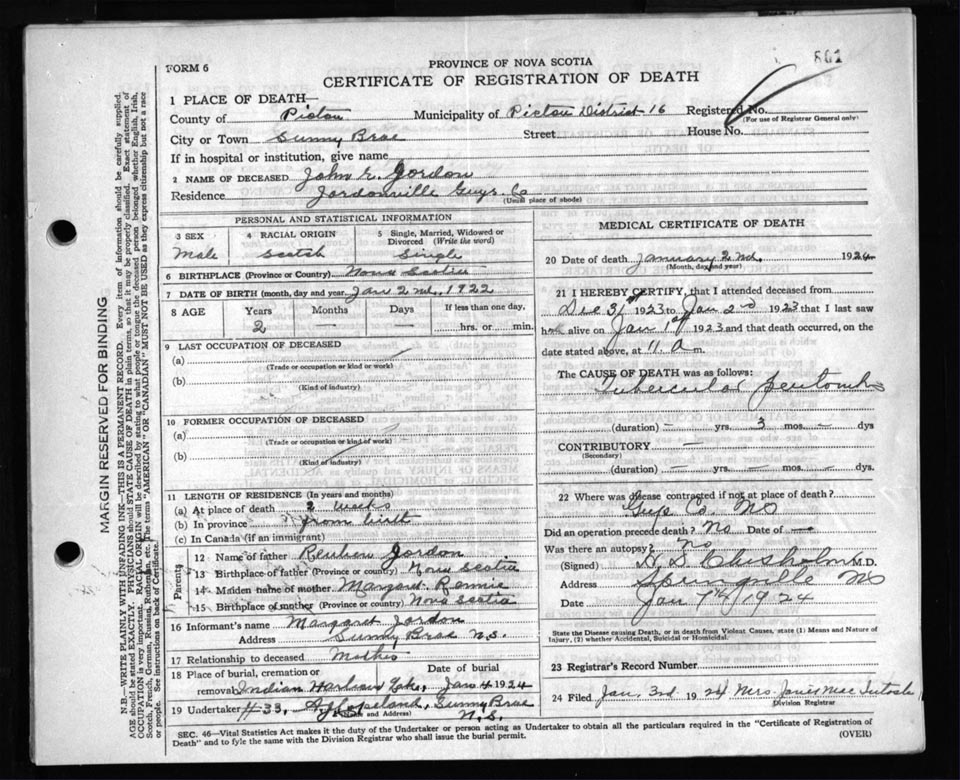 801
FORM 6
PROVINCE OF NOVA SCOTIA
CERTIFICATE OF REGISTRATION OF DEATH
1 PLACE OF DEATH—
County of Pictou Municipality of Pictou District 16 Registered No.
(For use of Registrar General only)
City or Town Sunny Brae Street House No.
If in hospital or institution, give name
2 NAME OF DECEASED John E. Gordon
Residence Jordonville Guys. Co
(Usual place of abode)
PERSONAL AND STATISTICAL INFORMATION
3 SEX 4 RACIAL ORIGIN 5 Single, Married, Widowed or Divorced (Write the word)
Male Scotch Single
6 BIRTHPLACE (Province or Country) Nova Scotia
7 DATE OF BIRTH (month, day and year) Jan 2nd, 1922
8 AGE Years Months Days If less than one day,
2 — — hrs. or min.
9 LAST OCCUPATION OF DECEASED
(a)
(Trade or occupation or kind or work)
(b)
(Kind of industry)
10 FORMER OCCUPATION OF DECEASED
(a)
(Trade or occupation or kind of work)
(b)
(Kind of industry)
11 LENGTH OF RESIDENCE (In years and months)
(a) At place of death 2 weeks
(b) In province from birth
(c) In Canada (if an immigrant)
Parents
12 Name of father Reuben Jordon
13 Birthplace of father (Province or country) Nova Scotia
14 Maiden name of mother Margaret Rennie
15 Birthplace of mother (Province or country) Nova Scotia
16 Informant's name Margaret Jordon
Address Sunny Brae N.S.
17 Relationship to deceased Mother
18 Place of burial, cremation or Date of burial
removal Indian Harbour Lake, Jan 4 1924
19 Undertaker #33, Copeland, Sunny Brae
(Name and Address) N.S.
MEDICAL CERTIFICATE OF DEATH
20 Date of death January 2nd, 1924
(Month, day and year)
21 I HEREBY CERTIFY, that I attended deceased from
Dec 31st 1923 to Jan 2nd 1923 that I last saw
h alive on Jan 1st 1923 and that death occurred, on
date stated above, at 11. a m.
The CAUSE OF DEATH was as follows:
Tubercular
(duration) — yrs. 3 mos. — dys
CONTRIBUTORY —
(Secondary)
(duration) — yrs. — mos. — dys.
22 Where was disease contracted if not at place of death?
Guys Co. NS
Did an operation precede death? No Date of —
Was there an autopsy? no
(Signed) Chisholm M.D.
Address Springville NS
Date Jan 7th/1924
State the Disease causing Death, or in death from Violent Causes, state (1) Means and Nature of
Injury, (2) whether Accidental, Suicidal or Homicidal.
23 Registrar's Record Number
24 Filed Jan. 3rd 1924 Mrs
Division Registrar
SEC. 46—Vital Statistics Act makes it the duty of the Undertaker or person acting as Undertaker to obtain all the particulars required in the "Certificate of Registration of
Death" and to fyle the same with the Division Registrar who shall issue the burial permit.
(OVER)
MARGIN RESERVED FOR BINDING
N.B.—WRITE PLAINLY WITH UNFADING INK—THIS IS A PERMANENT RECORD. Every item of information should be carefully supplied.
AGE should be stated EXACTLY. PHYSICIANS should STATE CAUSE OF DEATH in plain terms, so that it may be properly classified. Exact statement of
OCCUPATION is very important. RACIAL ORIGIN will be described by stating to what people or tongue the deceased person belonged whether English, Irish,
Scotch, French, German, Russian, Ruthenian, etc. The terms "AMERICAN" OR "CANADIAN" MUST NOT BE USED as they express citizenship but not a race
or people. See instructions on back of Certificate.